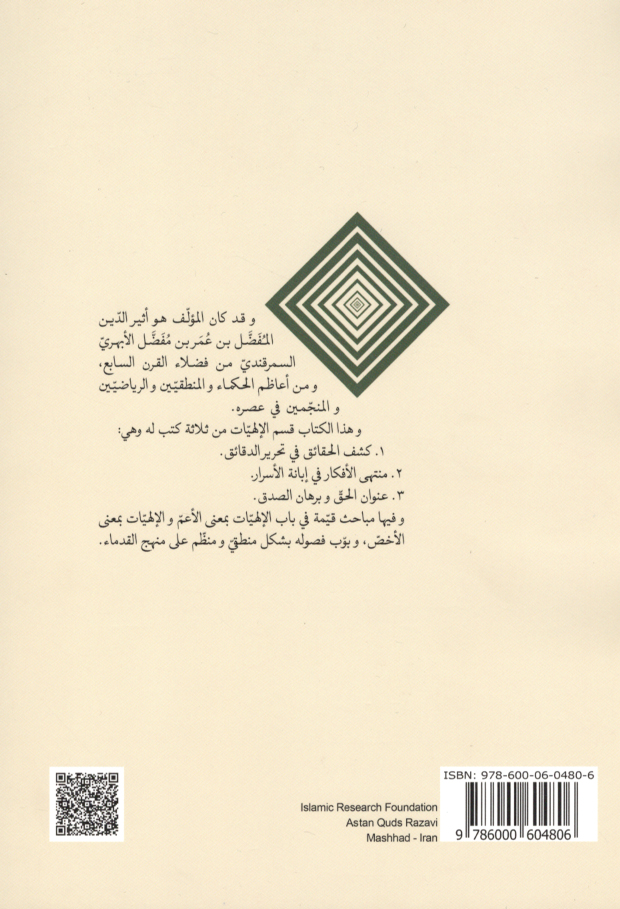 و قد كان المؤلّف هو أثير الدّين
المُفَضَّل بن عُمَر بن مُفَضَّل الأبهريّ
السمرقنديّ من فضلاء القرن السابع،
و من أعاظم الحكماء و المنطقيّين و الرياضيّين
و المنجّمين في عصره.
و هذا الكتاب قسم الإلهيّات من ثلاثة كتب له وهي:
١. كشف الحقائق في تحرير الدقائق.
٢. منتهى الأفكار في إبانة الأسرار.
٣. عنوان الحقّ و برهان الصدق.
و فيها مباحث قيّمة في باب الإلهيّات بمعنى الأعمّ و الإلهيّات بمعنى
الأخصّ، و بوّب فصوله بشكل منطقيّ و منظّم على منهج القدماء.
ISBN: 978-600-06-0480-6
Islamic Research Foundation
Astan Quds Razavi
Mashhad - Iran
9 786000 604806